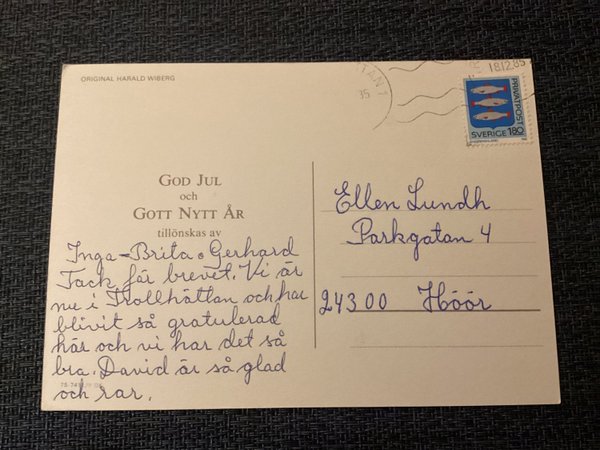 ORIGINAL HARALD WIBERG
18.12.85
PRIVATPOST
SVERIGE 180
GOD JUL
och
GOTT NYTT ÅR
tillönskas av
Inga-Brita o Gerhard
Tack får brevet. Vi är
nu i Trollhättan och har
blivit så gratulerad
här och vi har det så
bra. David är så glad
och rar.
Ellen Lundh
Parkgatan 4
24300 Höör